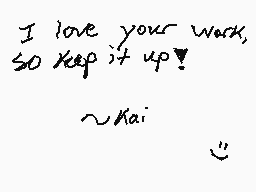 I love your work,
so keep it up!
~Kai